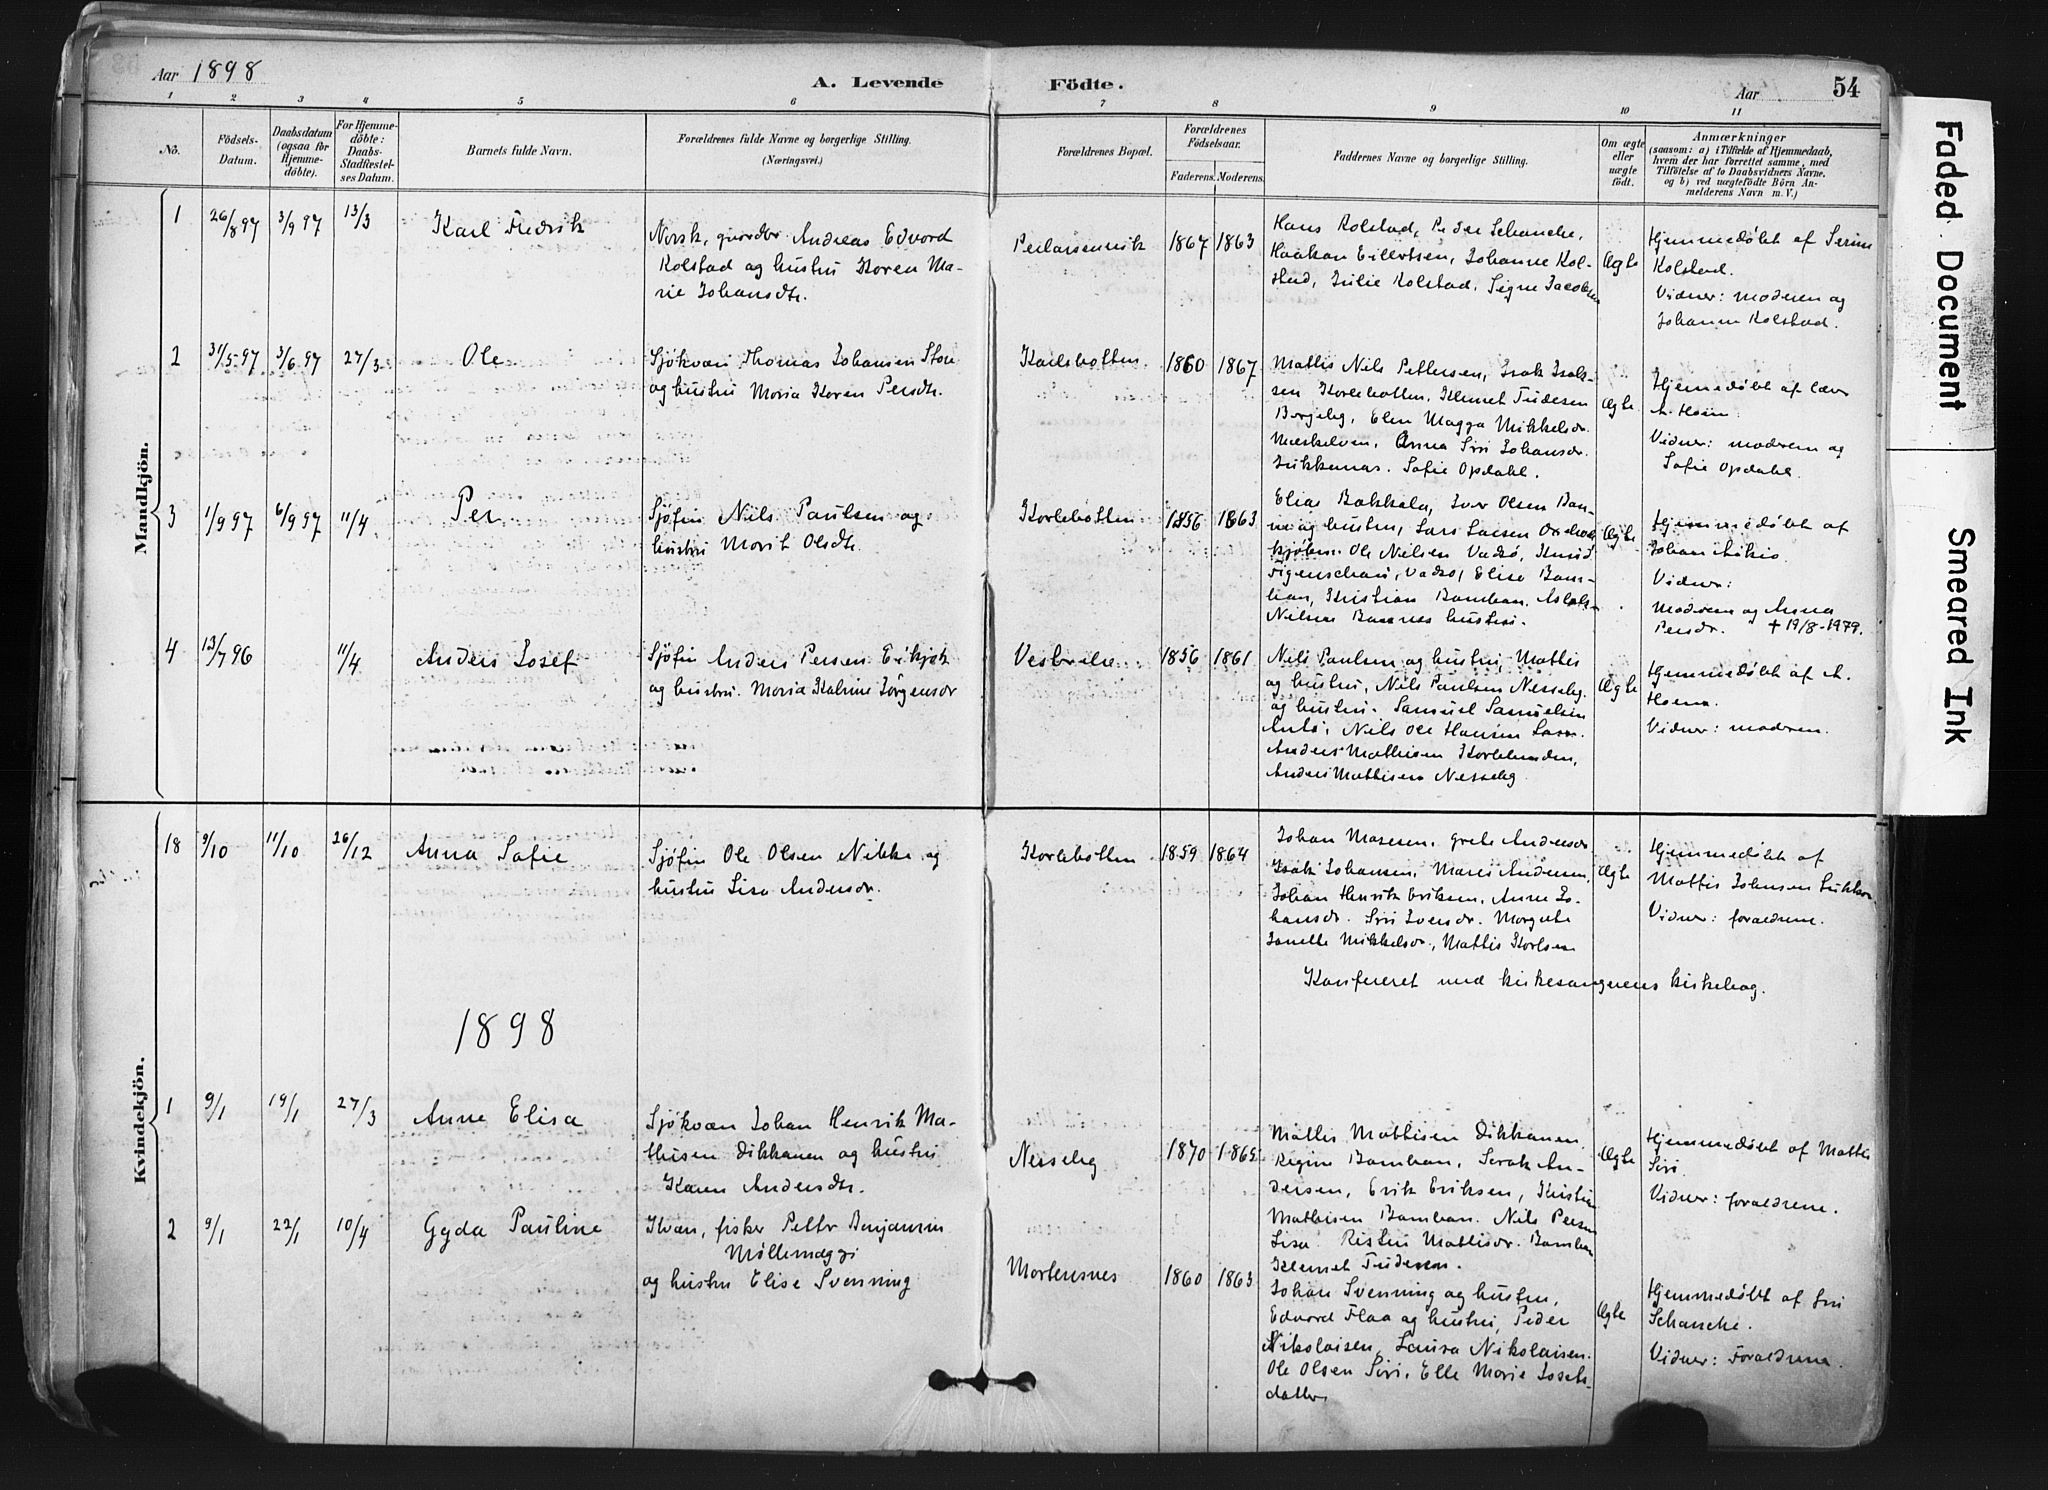 Aar 1898
A. Levende Födte.
Aar
54
1 2 3 4 5 6 7 8 9 10 11
No.
Födsels-Datum.
Daabsdatum (ogsaa for Hjemmedöbte).
For Hjemmedöbte: Daabs-Stadfæstelses Datum.
Barnets fulde Navn.
Forældrenes fulde Navne og borgerlige Stilling. (Næringsvei.)
Forældrenes Bopæl.
Forældrenes Födselsaar.
Faderens. Moderens.
Faddernes Navne og borgerlige Stilling.
Om ægte eller uægte födt.
Anmærkninger
(saasom: a) i Tilfælde af Hjemmedaab,
hvem der har forrettet samme, med
Tilföielse af to Daabsvidners Navne,
og b) ved uægtefödte Börn Anmelderens Navn m. V.)
Mandkjön.
1 26/8 97 3/9 97 13/3 Karl Fredrik
Norsk, gaardbr Andreas Edvard
Kolstad og hustru Karen Ma-
rie Johansdtr.
Perlarsenvik 1867 1863
Hans Kolstad, Peder Schanche,
Haakon Eilertsen, Johanne Kol-
stad, Julie Kolstad, Signe Jacobsen
Ægte
Hjemmedöbt af Serine
Kolstad.
Vidner: moderen og
Johanne Kolstad.
2 31/5 97 3/6 97 27/3 Ole
Sjökvæn Thomas Johansen Store
og hustru Maria Karen Persdtr.
Karlebotten 1860 1867
Mattis Nils Pettersen, Isak Isak-
sen Karlebotten, Klemet Fudesen
Bergeby, Elen Magga Mikkelsdr.
Mæskelven, Anna Siri Johansdr.
Jukkanas. Sofie Opdahl.
Ægte
Hjemmedöbt af lærer
A. Hoem
Vidner: moderen og
Sofie Opdahl.
3 1/9 97 6/9 97 11/4 Per
Sjöfin Nils Paulsen og
hustru Marit Olsdtr.
Karlebotten 1856 1863
Elias Bakkela, Iver Olsen Ban-
ne og hustru, Lars Larsen
Ole Nilsen Vadsö, Knud
Figenschau, Vadsö, Elise Bam-
ban, Kristian Bamban, Aslak
Nilsen Baanes hustru.
Ægte
Hjemmedöbt af
Johan Aikio
Vidner:
Moderen og Anna
Persdr. † 19/8-1979.
4 13/7 96 11/4 Anders Josef
Sjöfin Anders Persen Erikjok
og hustru. Maria Katrine Jörgensdr
Vesterelv 1856 1861
Nils Paulsen og hustru, Mattis
og hustru, Nils Paulsen Nesseby
og hustru. Samuel Samuelsen
Anti, Nils Ole Hansen
Anders Mathisen Karlebunden,
Anders Mathisen Nesseby.
Ægte
Hjemmedöbt af A.
Hoem.
Vidner: moderen.
Kvindekjön.
18 9/10 11/10 26/12 Anna Sofie
Sjöfin Ole Olsen Nikke og
hustru Lisa Andersdr.
Karlebotten 1859 1864
Johan Masesen, Grete Andersdr
Isak Johansen, Mares Andersen,
Johan Henrik Eriksen, Anne Jo-
hansdr. Siri Iversdr. Margrete
Janette Mikkelsdr., Mattis Karlsen
Ægte
Hjemmedöbt af
Mattis Johnsen
Vidner: forældrene.
Konfereret med kirkesangerens kirkebog.
1898
1 9/1 19/1 27/3 Anne Elisa
Sjökvæn Johan Henrik Ma-
thisen Dikkanen og hustru
Karen Andersdtr.
Nesseby 1870 1865
Mattis Mathisen Dikkanen
Regine Bamban, Serak An-
dersen, Erik Eriksen, Kristine
Mathisen Bamban. Nils Persen
Lisa Ristin Mattisdr. Bamban
Klemet Fudesen.
Ægte
Hjemmedöbt af Mattis
Siri.
Vidner: forældrene.
2 9/1 22/1 10/4 Gyda Pauline
Kvæn, fisker Petter Benjamin
Möllemæggi
og hustru Elise Svenning
Mortensnes 1860 1863
Johan Svenning og hustru,
Edvard Flaa og hustru, Peder
Nikolaisen, Laura Nikolaisen.
Ole Olsen Siri, Elle Marie Josefs-
datter.
Ægte
Hjemmedöbt af Siri
Schanche.
Vidner: Forældrene.
Faded Document
Smeared Ink